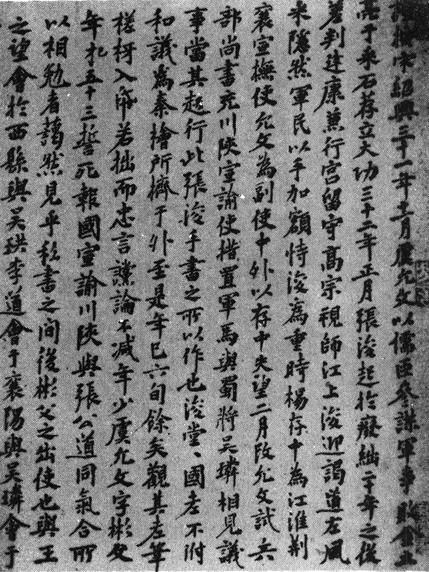 宋紹興三十一年十一月虞允文以儒臣參謀軍事敗金主
亮于采石存立大功三十二年正月張浚起於廢絀二十年之後
差判建康兼行宮留守高宗視師江上浚迎謁道左風
采隱然軍民以手加額恃浚為重時楊存中為江淮荊
襄宣撫使允文為副使中外以存中失望二月改允文試兵
部尚書充川陝宣諭使措置軍馬與蜀將吳璘相見議
事當其起行此張浚手書之所以作也浚堂堂國老不附
和議為秦檜所擠于外至是年已六旬餘矣觀其老筆
槎枒入帋若拙而忠言讜論不減年少虞允文字彬父
年才五十三誓死報國宣諭川陝與張公道同氣合所
以相勉者藹然見乎秋書之間後彬父之出使也與王
之望會於西縣與吳珙李道會于襄陽與吳璘會于